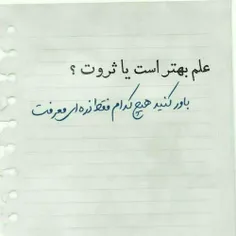 علم بهتر است یا ثروت ؟
باور کنید هیچ کدام فقط ذره ای معرفت